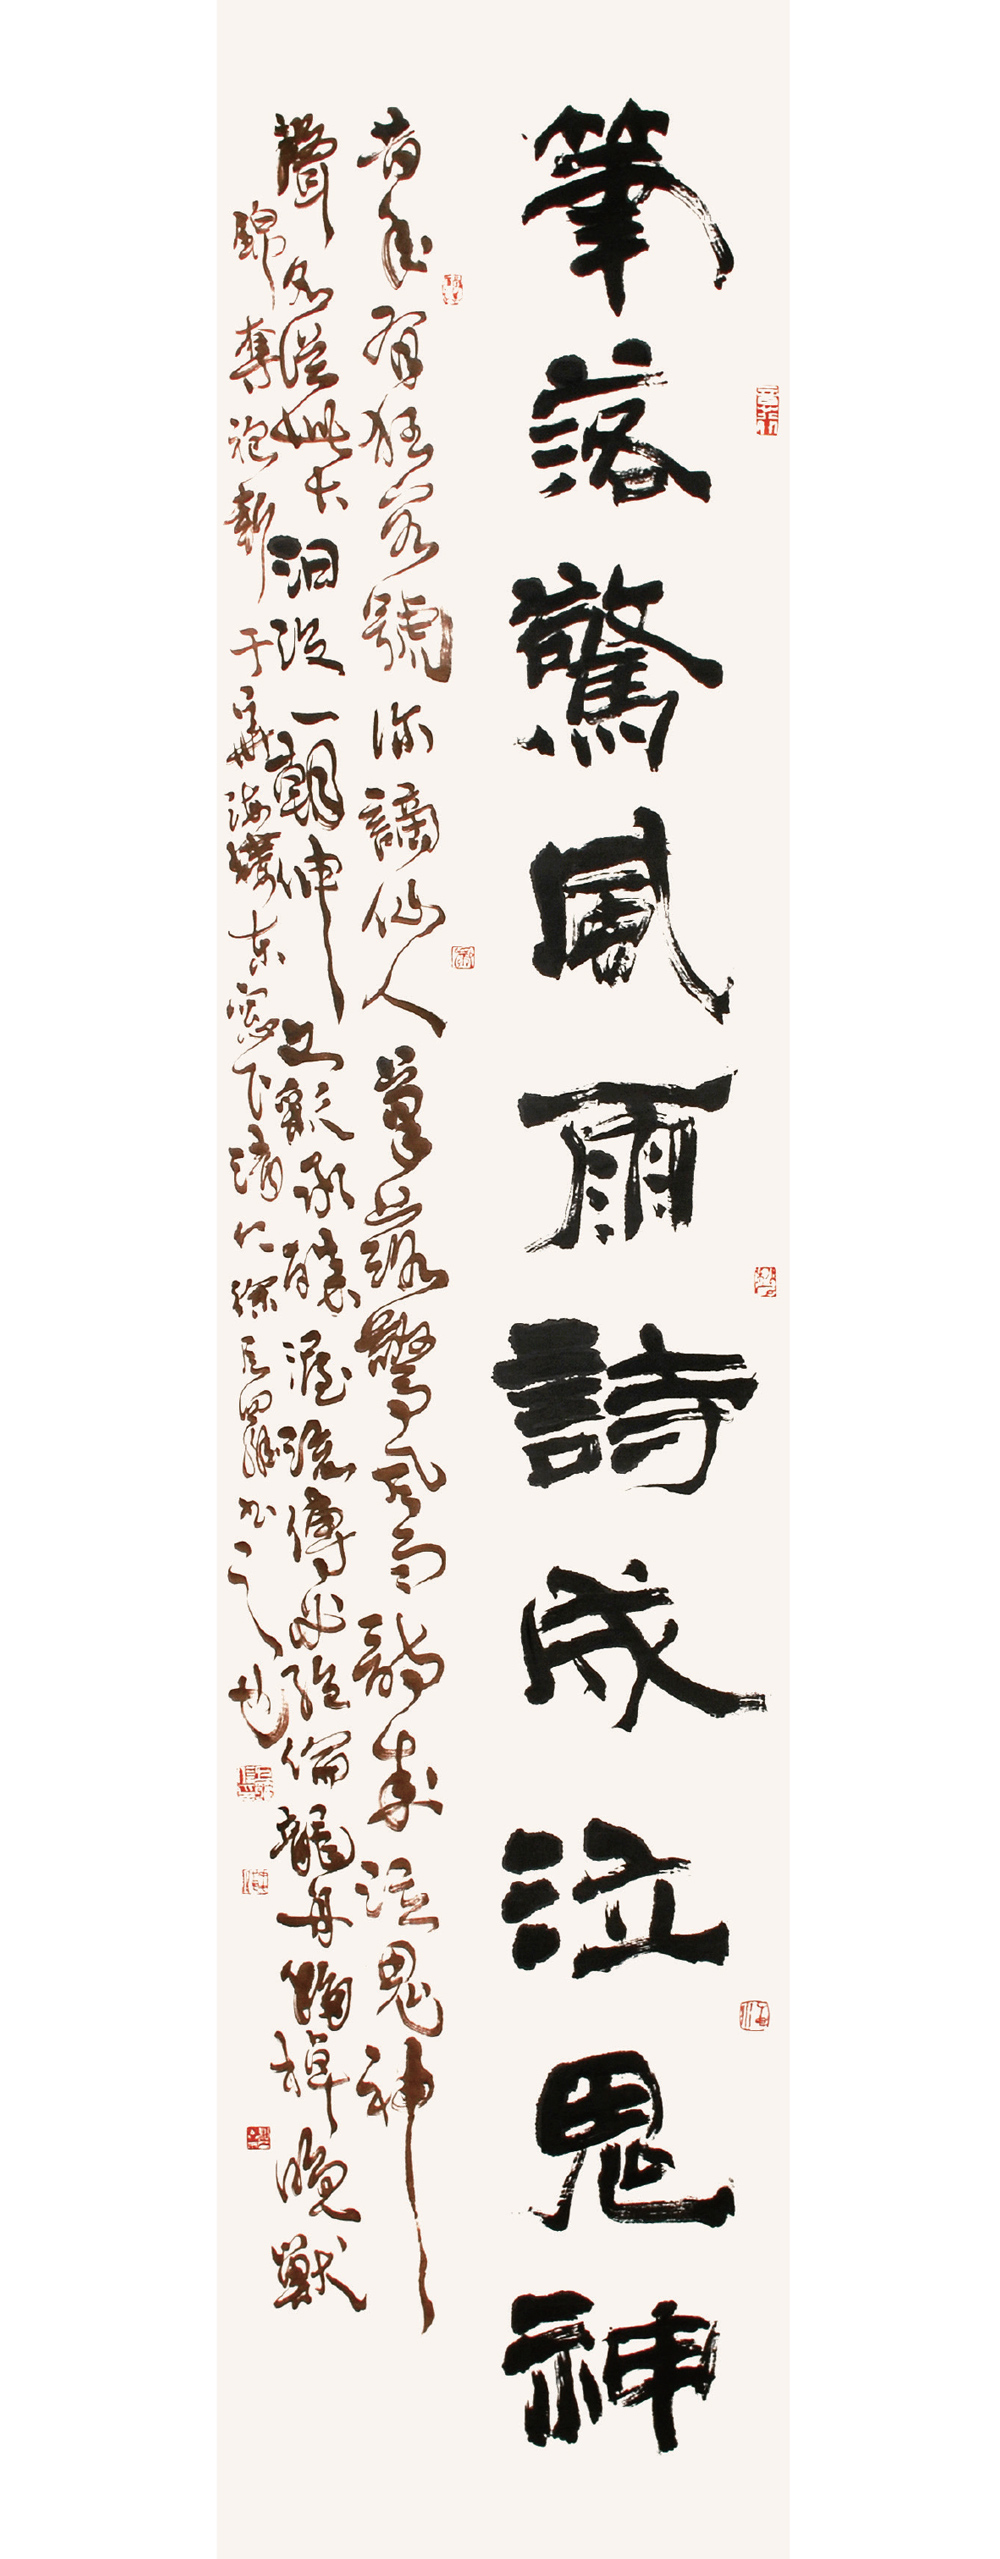 筆落驚風雨詩成泣鬼神
昔年有狂客號你謫仙人筆落驚風雨詩成泣鬼神
聲名從此大汩沒一朝伸文彩承殊渥流傳必絕倫龍舟移棹晚獸
錦奪袍新于 海 东窗下 之也